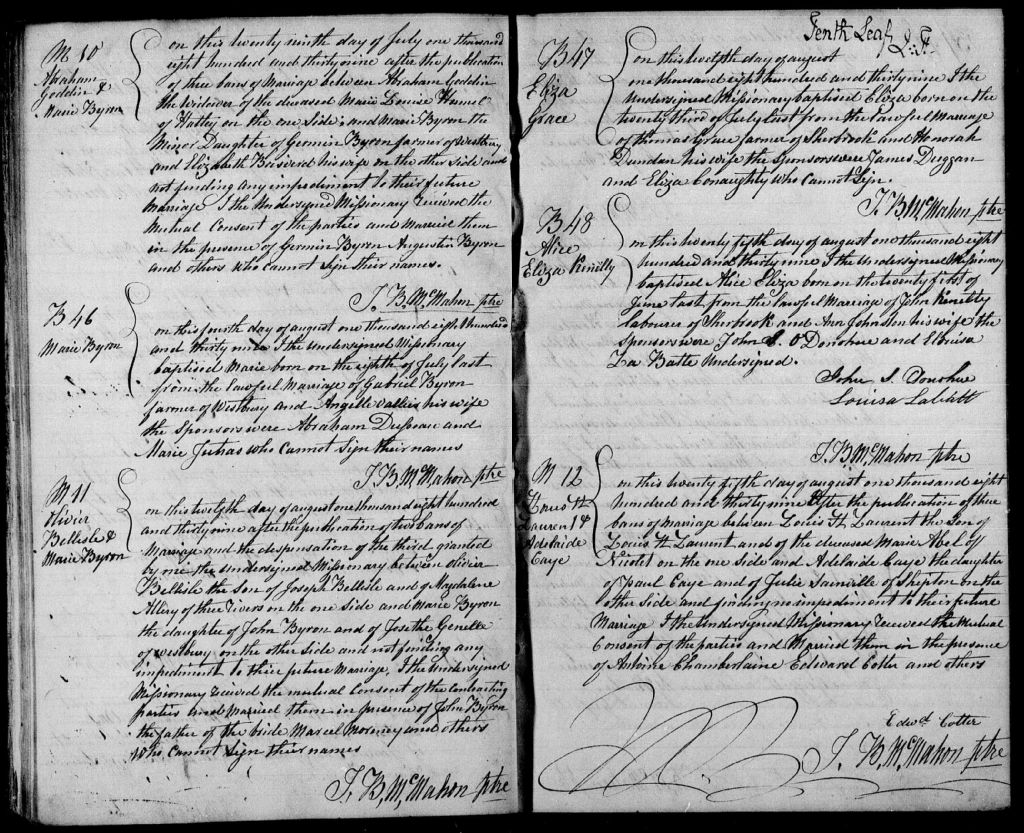 M 10
Abraham
Goddin &
Marie Byron
on this twenty ninth day of July one thousand
eight hundred and thirty nine after the publication
of three bans of Marriage between Abraham Goddin
the widower of the deceased Marie Louise
of Hatley on the one Side and Marie Byron the
Minor Daughter of Germin Byron farmer of Westbury
and Elizabeth his wife on the other Side and
not finding any impediment to their future
Marriage I the Undersigned Missionary received the
Mutual Consent of the parties and Married them
in the presence of Germin Byron Augustin Byron
and others who cannot sign their names.
J. B. McMahon ptre
B 46
Marie Byron
on this fourth day of august one thousand eight hundred
and thirty nine I the undersigned Missionary
baptised Marie born on the eighth of July last
from the lawful Marriage of Gabriel Byron
farmer of Westbury and Angelle Vallier his wife
the Sponsors were Abraham and
Marie who cannot Sign their names
J. B. McMahon ptre
M 11
Olivier
Bellisle &
Marie Byron
on this twelfth day of august one thousand eight hundred
and thirty nine after the publication of two bans of
Marriage and the dispensation of the third granted
by one the undersigned Missionary between Olivier
Bellisle the son of Joseph Bellisle and of Magdalene
Allery of three Rivers on the one side and Marie Byron
the daughter of John Byron and of Josethe Genelle
of Westbury on the other side and not finding any
impediment to their future Marriage, I the Undersigned
Missionary received the mutual Consent of the contracting
parties and Married them in presence of John Byron
the father of the bride Marcel and others
who cannot sign their names
J. B. McMahon ptre
Tenth Leaf
B 47
Eliza
Grace
on this twelfth day of august
one thousand eight hundred and thirty nine I the
Undersigned Missionary baptised Eliza born on the
twenty third of July last from the lawful Marriage
of Thomas Grace farmer of Sherbrook and Honorah
Dundan his wife the Sponsors were James Duggan
and Eliza Conaughty who cannot Sign.
J. B. McMahon ptre
B 48
Alice
Eliza Kenilly
on this twenty fifth day of august one thousand eight
hundred and thirty nine I the Undersigned Missionary
baptised Alice Eliza born on the twenty first of
June last from the lawful Marriage of John
labourer of Sherbrook and Ann Johnston his wife the
Sponsors were John S. O'Donohue and
La Batte Undersigned.
John S. Donohue
Louisa Labatt
J. B. McMahon ptre
M 12
Louis St
Laurent &
Adelaide
Caye
on this twenty fifth day of august one thousand eight
hundred and thirty nine After the publication of three
bans of Marriage between Louis St Laurent the Son of
Louis St Laurent and of the deceased Marie Abel of
Nicolet on the one Side and Adelaide Caye the daughter
of Paul Caye and of Julie Sainville of Shipton on the
other Side and finding no impediment to their future
Marriage I the Undersigned Missionary received the Mutual
Consent of the parties and Married them in the presence
of Antoine Chamberlaine Edward Cotter and others
Edwd Cotter
J. B. McMahon ptre